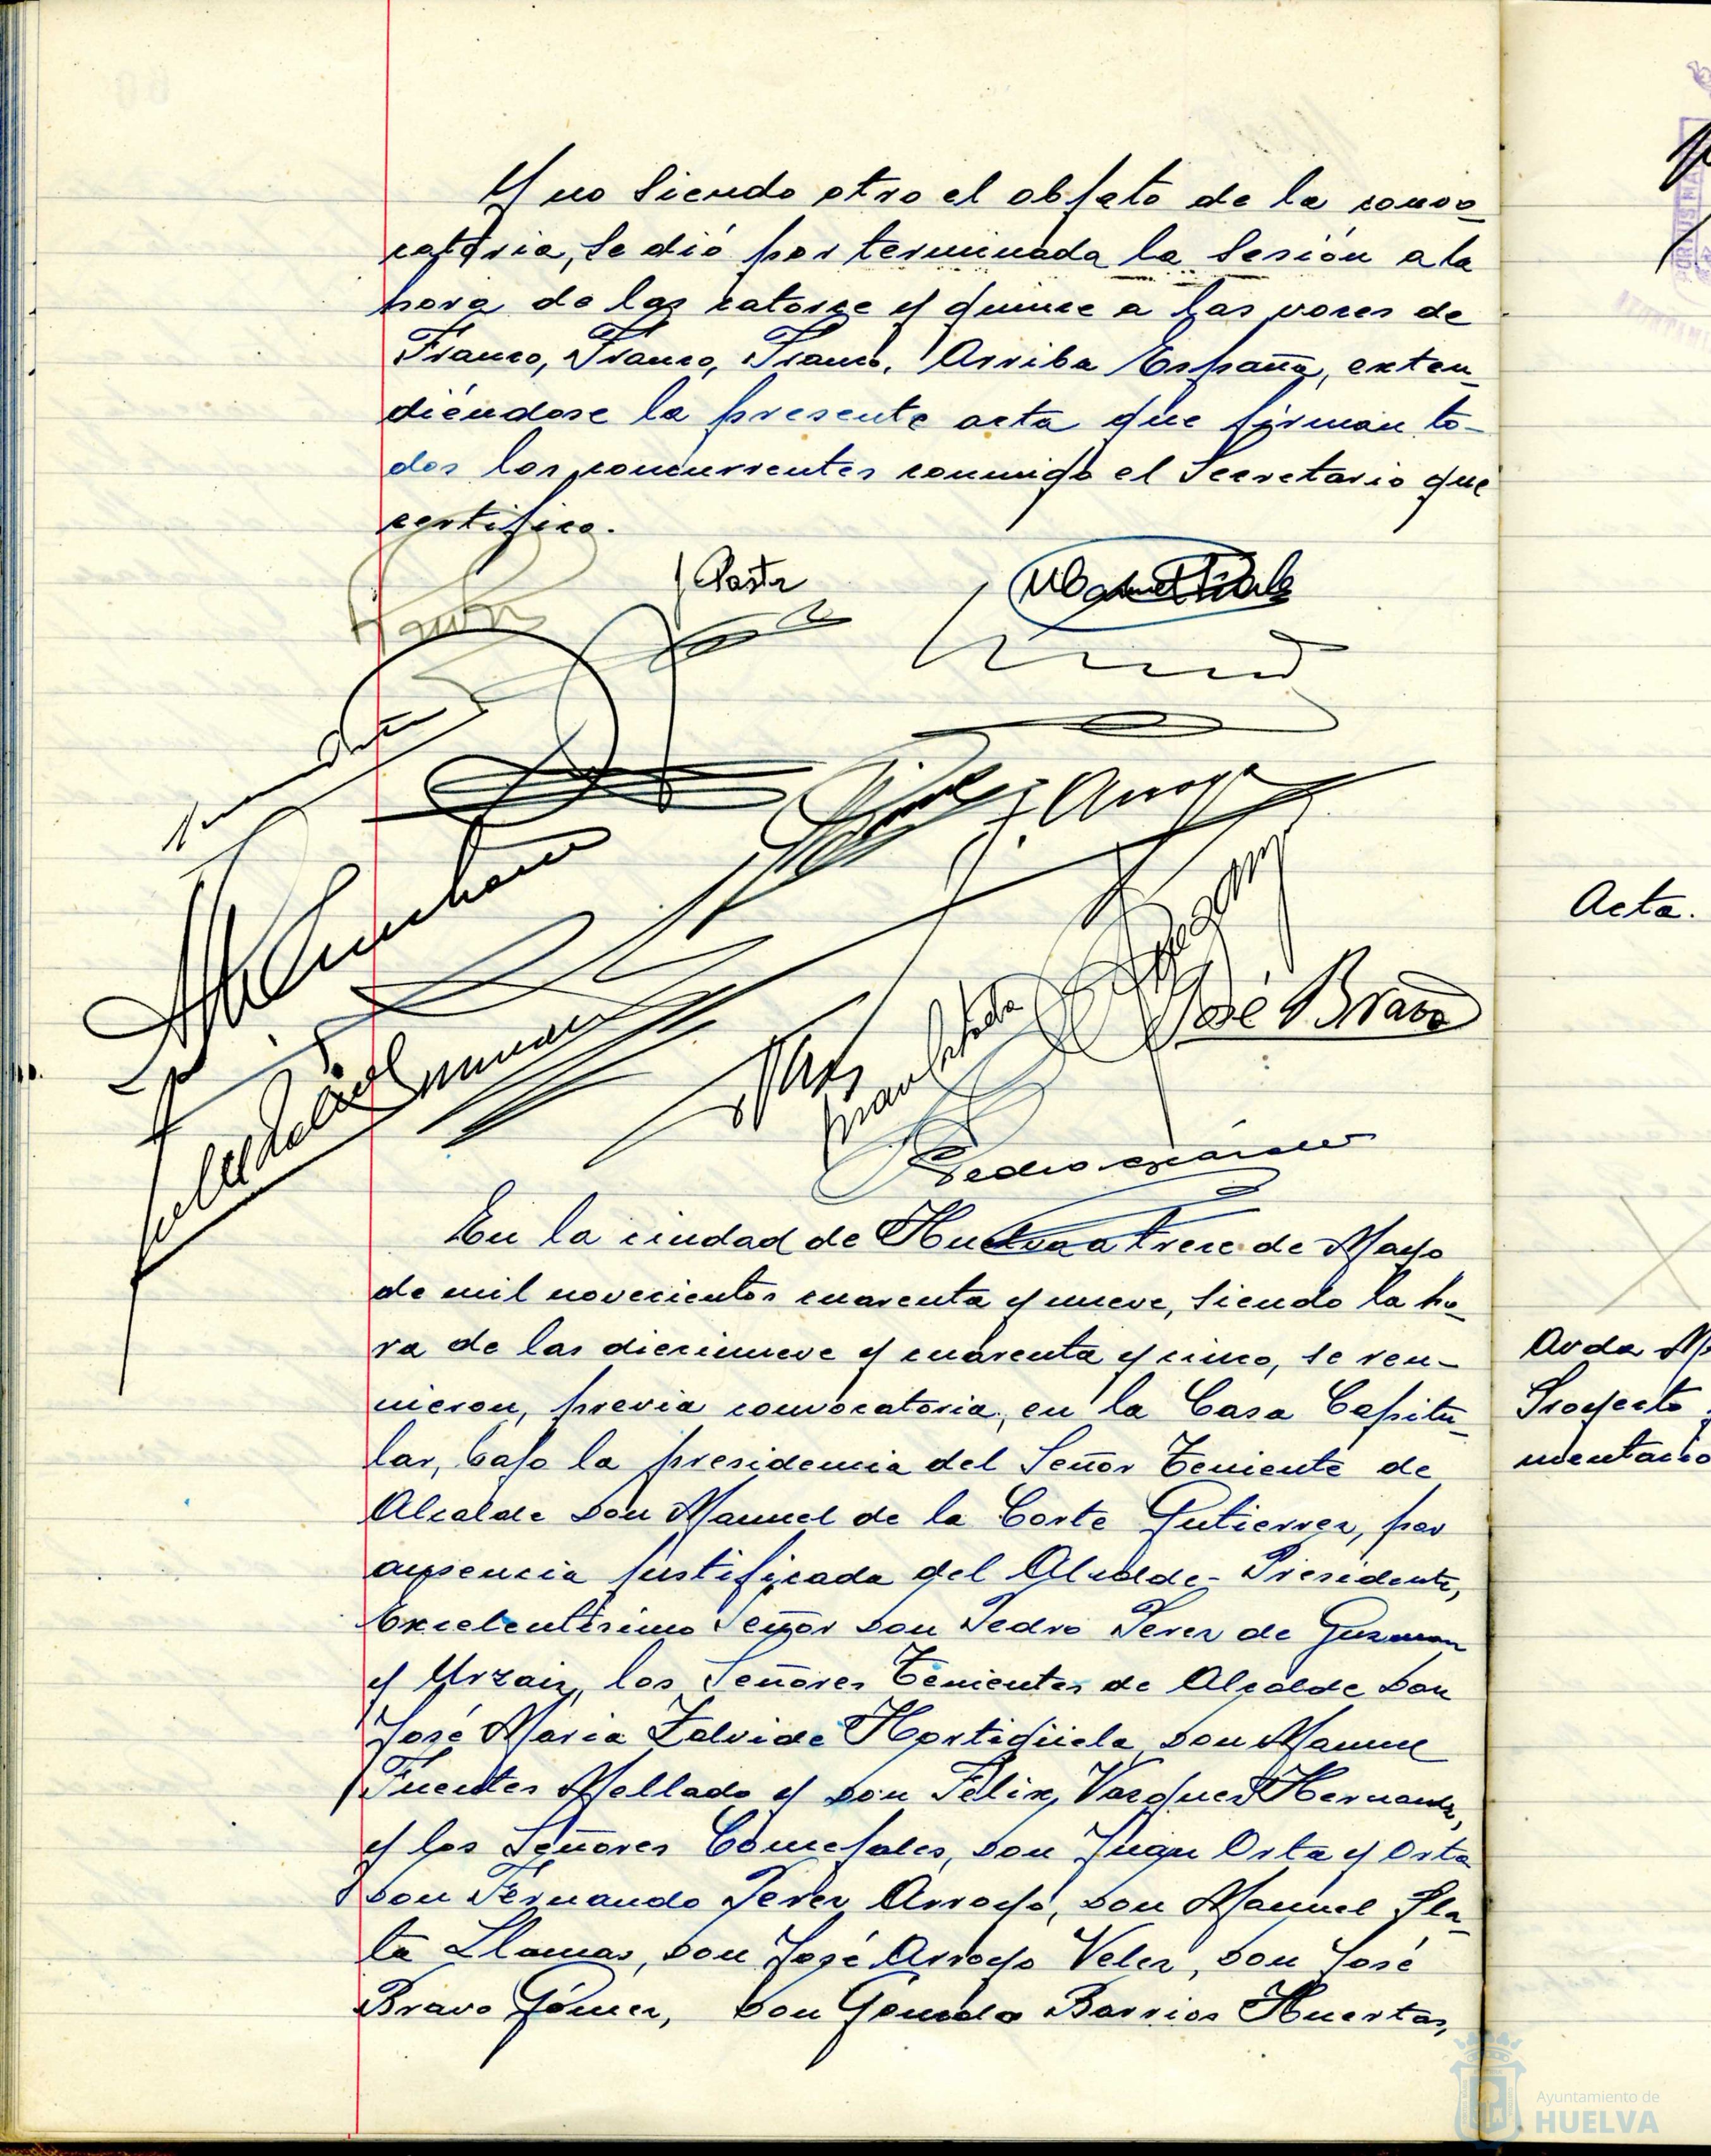 Y no siendo otro el objeto de la convo-
catoria, se dió por terminada la sesión a la
hora de las catorce y quince a las voces de
Franco, Franco, Franco, ¡Arriba España, exten-
diéndose la presente acta que firman to-
dos los concurrentes conmigo el Secretario que
certifico.
J Pastr
Pedro
José Bravo
En la ciudad de Huelva a trece de Mayo
de mil novecientos cuarenta y nueve, siendo la ho-
ra de las diecinueve y cuarenta y cinco, se reu-
nieron, previa convocatoria, en la Casa Capitu-
lar, bajo la presidencia del Señor Teniente de
Alcalde Don Manuel de la Corte Gutierrez, por
ausencia justificada del Alcalde-Presidente,
Excelentísimo Señor Don Pedro Perez de Guzman
y Urzaiz, los Señores Tenientes de Alcalde Don
José Maria Zalvide Hortigüela, Don Manuel
Fuentes Mellado y Don Felix Vazquez Hernandez,
y los Señores Concejales, Don Juan Orta y Orta
Don Fernando Perez Arroyo, Don Manuel Pla-
ta Llamas, Don José Arroyo Velez, Don José
Bravo Gómez, Don Barrios Huertas,
Acta.
Avda M
Proyecto
mentacio
Ayuntamiento de
HUELVA